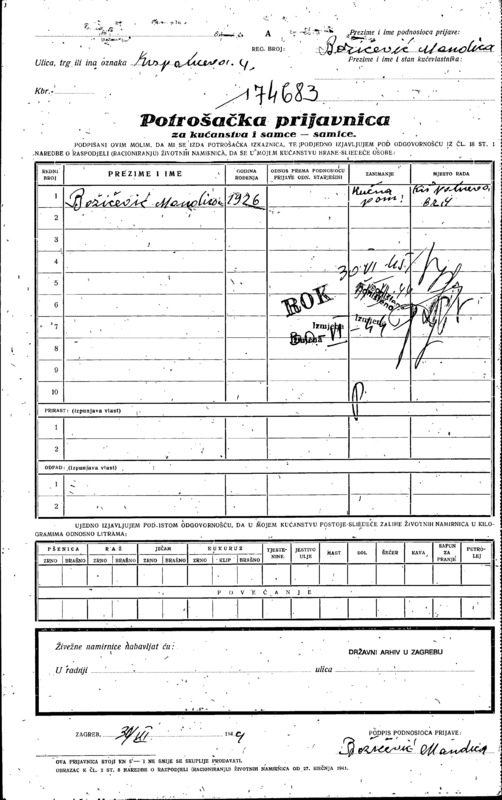 A
Prezime i ime podnosioca prijave:
REG. BROJ:
Božičević Mandica
Ulica, trg ili ina oznaka
Prezime i ime i stan kućevlasnika:
Kbr.
174683
Potrošačka prijavnica
za kućanstva i samce — samice.
PODPISANI OVIM MOLIM, DA MI SE IZDA POTROŠAČKA IZKAZNICA, TE PODJEDNO IZJAVLJUJEM POD ODGOVORNOŠĆU IZ ČL. 18 ST. 1
NAREDBE O RASPODJELI (RACIONIRANJU) ŽIVOTNIH NAMIRNICA, DA SE U MOJEM KUĆANSTVU HRANE SLIEDEĆE OSOBE:
REDNI BROJ PREZIME I IME GODINA RODJENJA ODNOS PREMA PODNOSIOCU PRIJAVE ODN. STARJEŠINI ZANIMANJE MJESTO RADA
1 Božičević Mandica 1926 Kućna pom.
2
3
4
5
ROK
6
7
Izmjena
8
9
10
PRIRAST: (izpunjava vlast)
1
2
ODPAD: (izpunjava vlast)
1
2
UJEDNO IZJAVLJUJEM POD ISTOM ODGOVORNOŠĆU, DA U MOJEM KUĆANSTVU POSTOJE SLIEDEĆE ZALIHE ŽIVOTNIH NAMIRNICA U KILO-
GRAMIMA ODNOSNO LITRAMA:
PŠENICA RAŽ JEČAM KUKURUZ TJESTE-NINE JESTIVO ULJE MAST SOL ŠEĆER KAVA SAPUN ZA PRANJE PETRO-LEJ
ZRNO BRAŠNO ZRNO BRAŠNO ZRNO BRAŠNO ZRNO KLIP BRAŠNO
POVEĆANJE
Živežne namirnice nabavljat ću:
DRŽAVNI ARHIV U ZAGREBU
U radnji ulica
ZAGREB, 194
PODPIS PODNOSIOCA PRIJAVE:
Božičević Mandica
OVA PRIJAVNICA STOJI KN 1— I NE SMIJE SE SKUPLJE PRODAVATI.
OBRAZAC K ČL. 2 ST. 8 NAREDBE O RAZPODJELI (RACIONIRANJU) ŽIVOTNIH NAMIRNICA OD 27. SIEČNJA 1941.